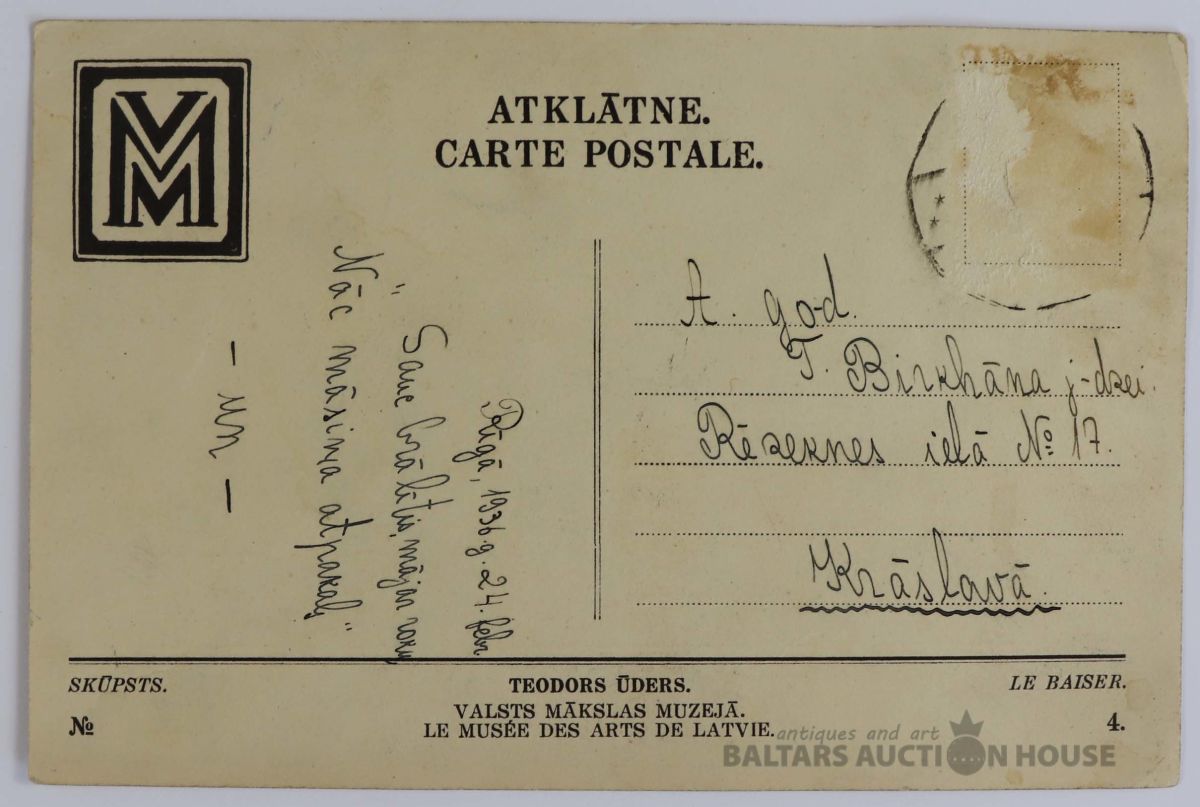 VMM
ATKLĀTNE.
CARTE POSTALE.
Rīgā, 1936.g. 24. febr.
"Sauc brālītis, mājar roku
Nāc māsiņa atpakaļ"
A. god.
T. Birkhāna j-dzei.
Rēzeknes ielā № 17.
Krāslavā.
SKŪPSTS.
TEODORS ŪDERS.
LE BAISER.
VALSTS MĀKSLAS MUZEJĀ.
№
LE MUSÉE DES ARTS DE LATVIE.
4.
antiques and art
BALTARS AUCTION HOUSE